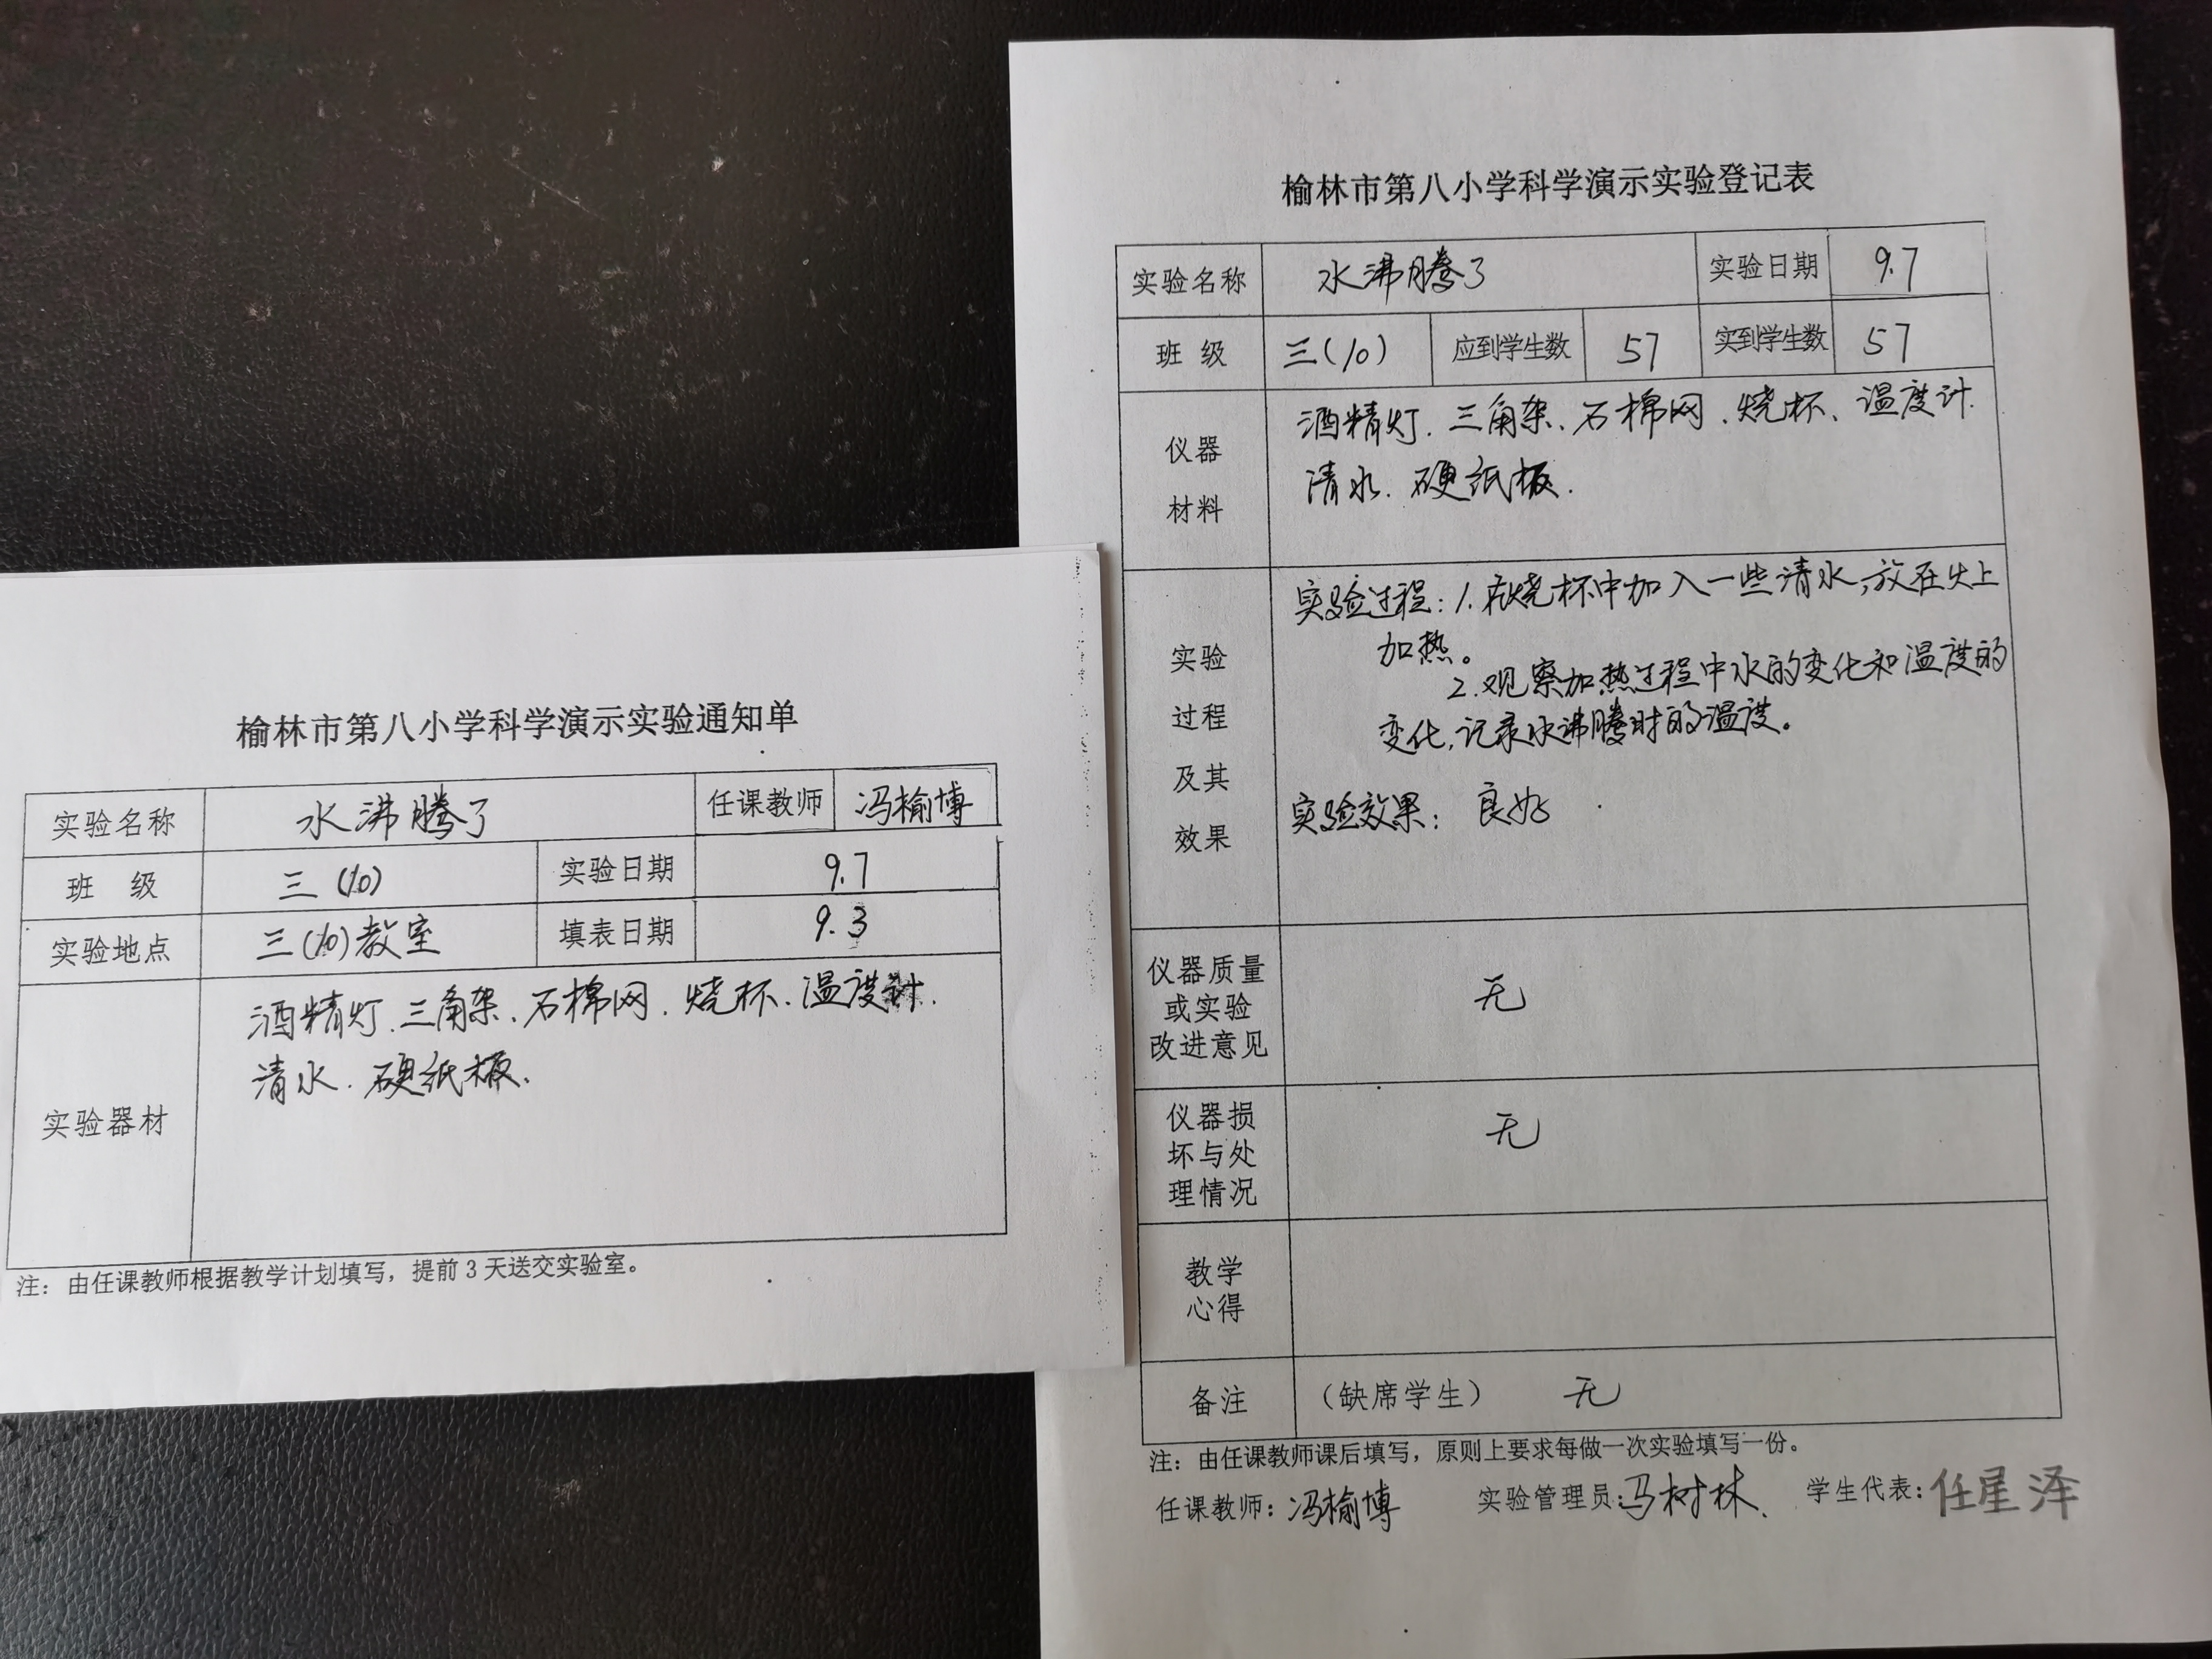 榆林市第八小学科学演示实验通知单
实验名称 水沸腾了 任课教师 冯榆博
班 级 三(10) 实验日期 9.7
实验地点 三(10)教室 填表日期 9.3
实验器材 酒精灯.三角架、石棉网.烧杯、温度计.
清水.硬纸板.
注：由任课教师根据教学计划填写，提前3天送交实验室。
榆林市第八小学科学演示实验登记表
实验名称 水沸腾了 实验日期 9.7
班 级 三(10) 应到学生数 57 实到学生数 57
仪器
材料
酒精灯.三角架、石棉网.烧杯、温度计.
清水.硬纸板.
实验
过程
及其
效果
实验过程：1.在烧杯中加入一些清水,放在火上
加热。
2.观察加热过程中水的变化和温度的
变化,记录水沸腾时的温度。
实验效果：良好
仪器质量
或实验
改进意见
无
仪器损
坏与处
理情况
无
教学
心得
备注 （缺席学生） 无
注：由任课教师课后填写，原则上要求每做一次实验填写一份。
任课教师：冯榆博 实验管理员：马树林 学生代表：任星泽